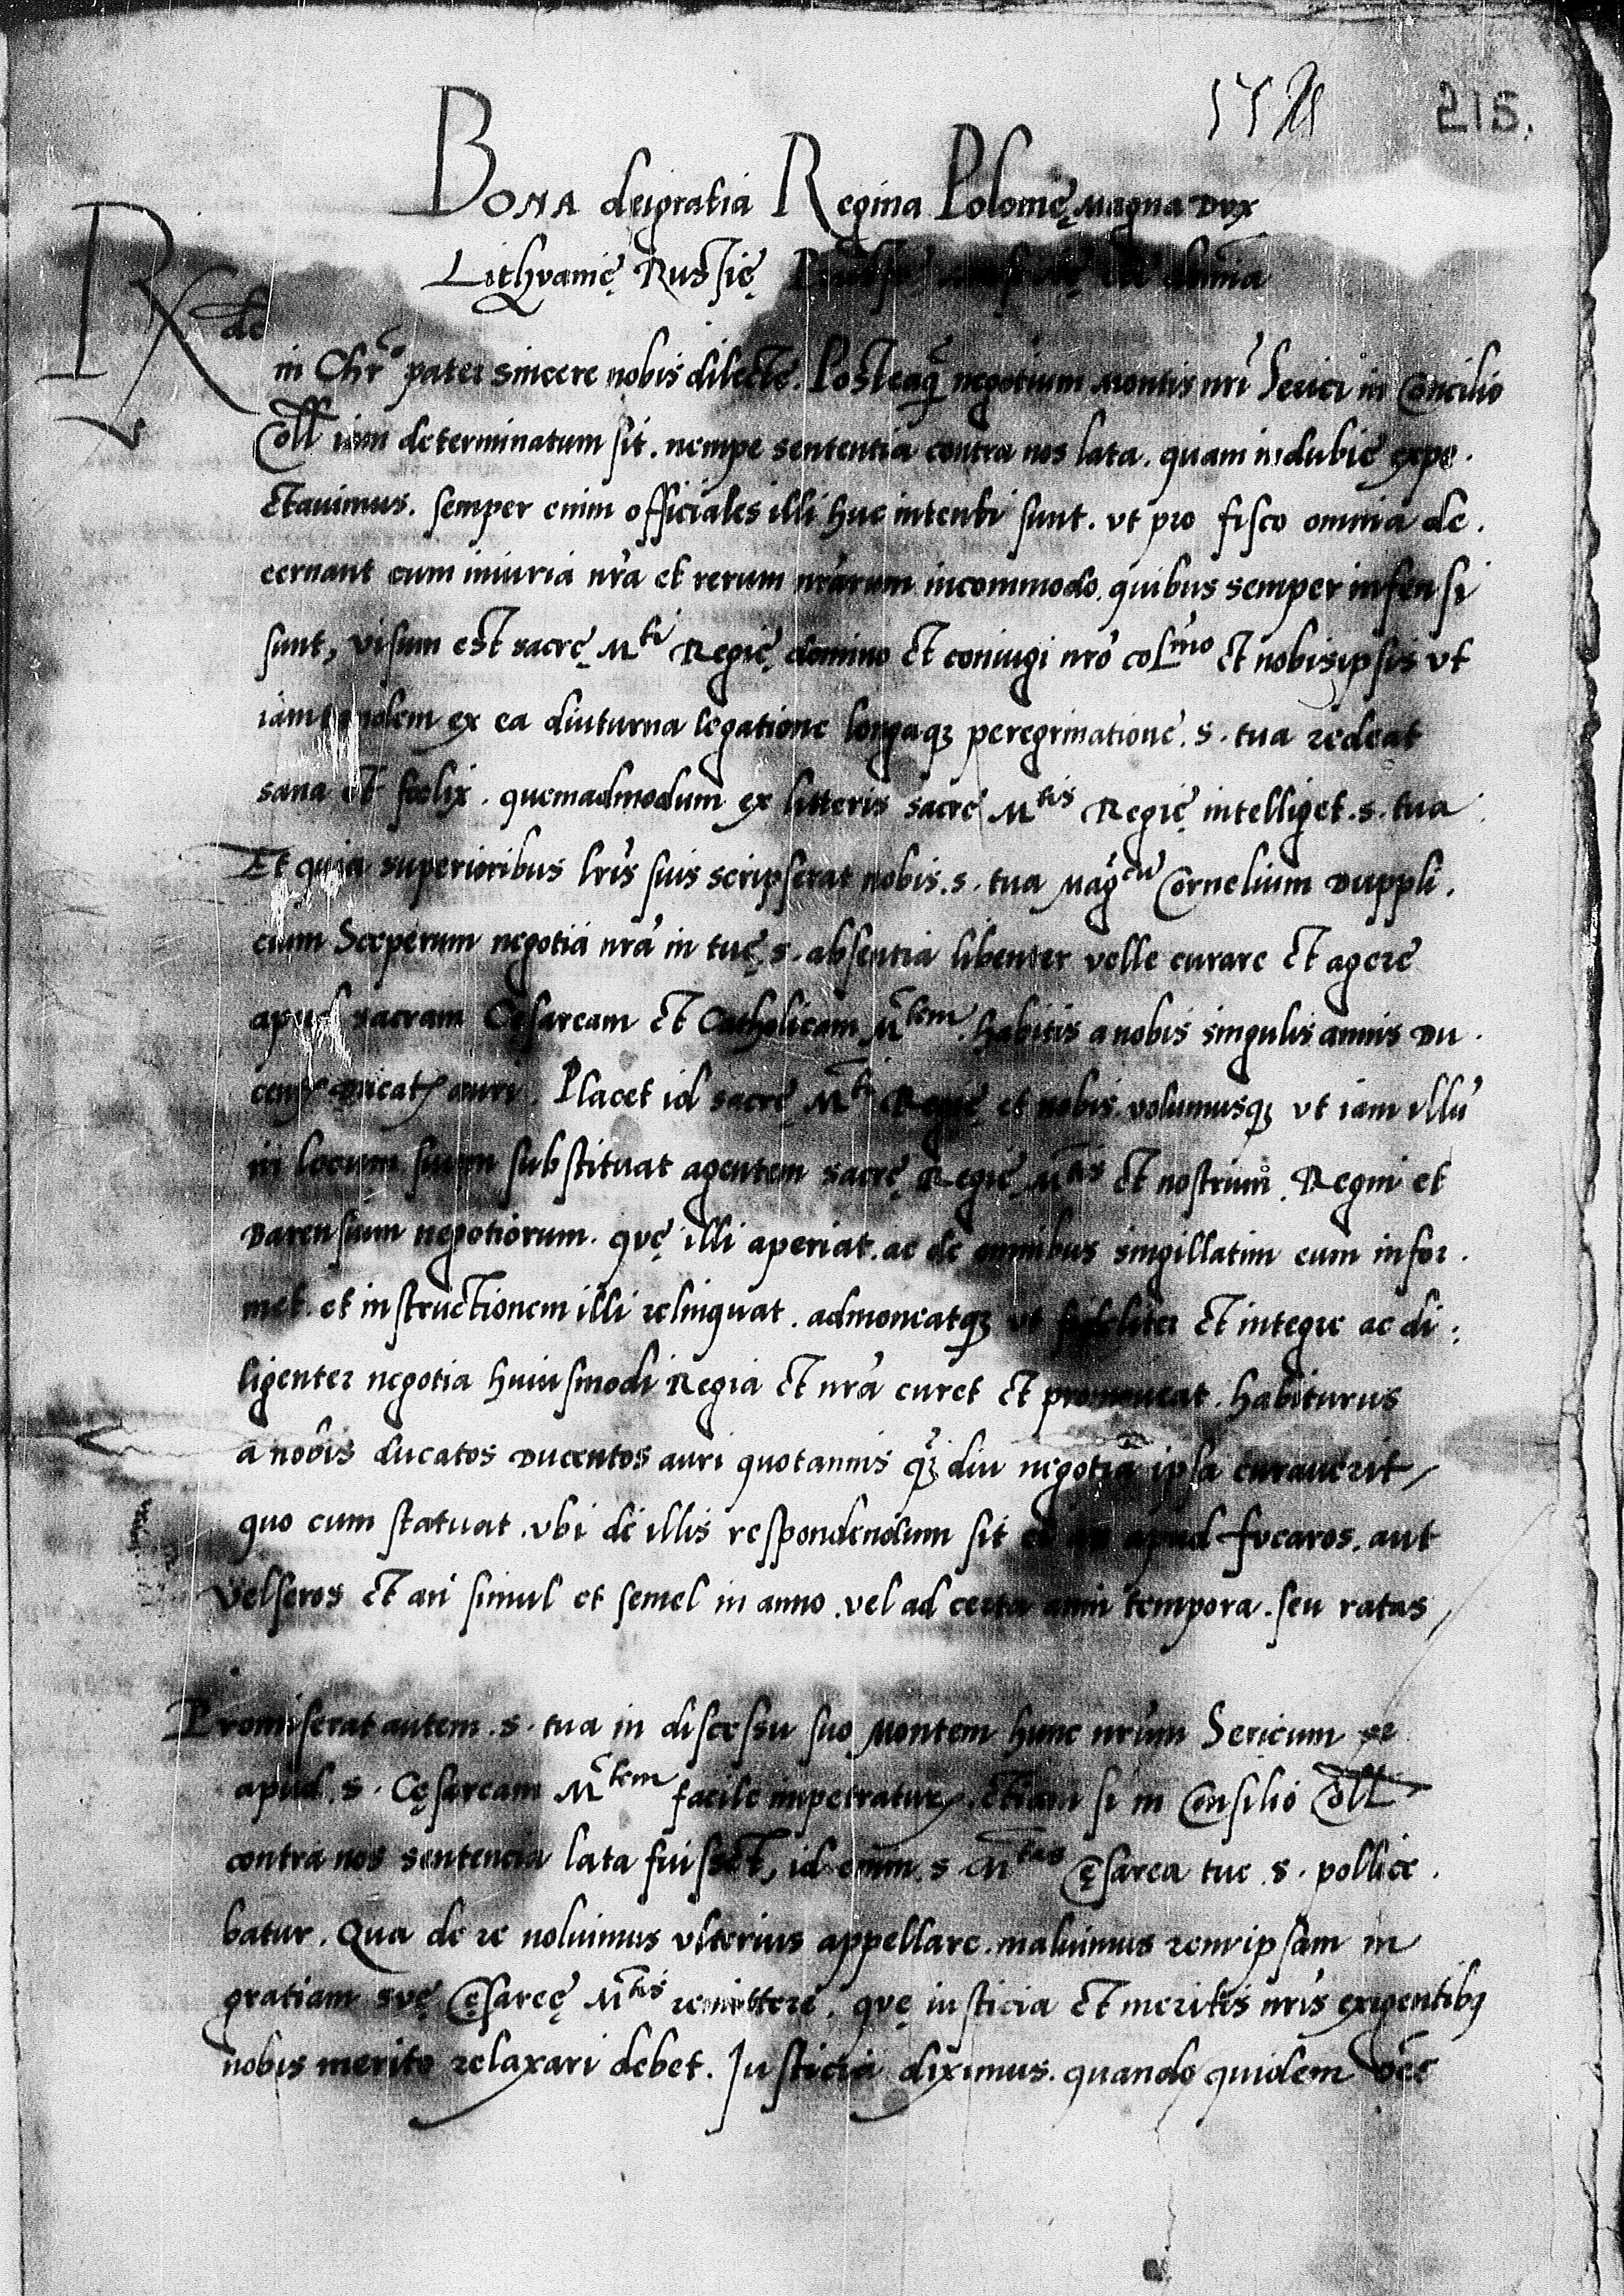 215.
BONA deigratia Regina Polonię Magna Dux
Lithvanię Russię
Rde
in Chrō pater sincere nobis dilecte. Posteaq̃ negotium Montis nr̃i Serici in Concilio
Coll iam determinatum sit. nempe sententia contra nos lata. quam indubie expe.
ctauimus. semper enim officiales illi huc intenti sunt. vt pro fisco omnia de.
cernant cum iniuria nr̃a et rerum nr̃arum incommodo. quibus semper infensi
sunt, visum est sacrę Mti Regię domino et coniugi nr̃o colmo et nobisipsis vt
iam tandem ex ea diuturna legatione longaqꝫ peregrinatione. s. tua redeat
sana et foelix. quemadmodum ex litteris sacrę Mtis Regię intelliget. s. tua
Et quia superioribus lr̃is suis scripserat nobis. s. tua Magcũ Cornelium Duppli.
cium Sceperum negotia nr̃a in tuę. s. absentia libenter velle curare et agere
apud sacram Cęsaream et Catholicam Mtem. habitis a nobis singulis annis Du.
centꝭ ducatꝭ auri. Placet id sacrę Mti Regię et nobis. volumusqꝫ vt iam illũ
in locum suum substituat agentem sacrę Regię Mtis et nostrum. Regni et
Barensium negotiorum. quę illi aperiat. ac de omnibus singillatim eum infor.
met. et instructionem illi relinquat. admoneatqꝫ vt fideliter et integre ac di.
ligenter negotia huiusmodi Regia et nr̃a curet et promoueat. habiturus
a nobis ducatos Ducentos auri quotannis q̃diu negotia ipsa curauerit,
quo cum statuat. vbi de illis respondendum sit apud fucaros. aut
Velseros et an simul et semel in anno. vel ad certa anni tempora. seu ratas,
Promiserat autem. s. tua in discessu suo Montem hunc nr̃um Sericum se
apud. s. Cęsaream Mtem facile impetraturꝫ. etiam si in Consilio Coll
contra nos sentencia lata fuisset, id enim. s. Mtas Cęsarea tue. s. pollice.
batur. Qua de re noluimus vlterius appellare. maluimus rem ipsam in
gratiam suę Cęsareę Mtis remittere. quę iusticia et meritis nr̃is exigentibꝫ
nobis merito relaxari debet. Justicia diximus. quando quidem